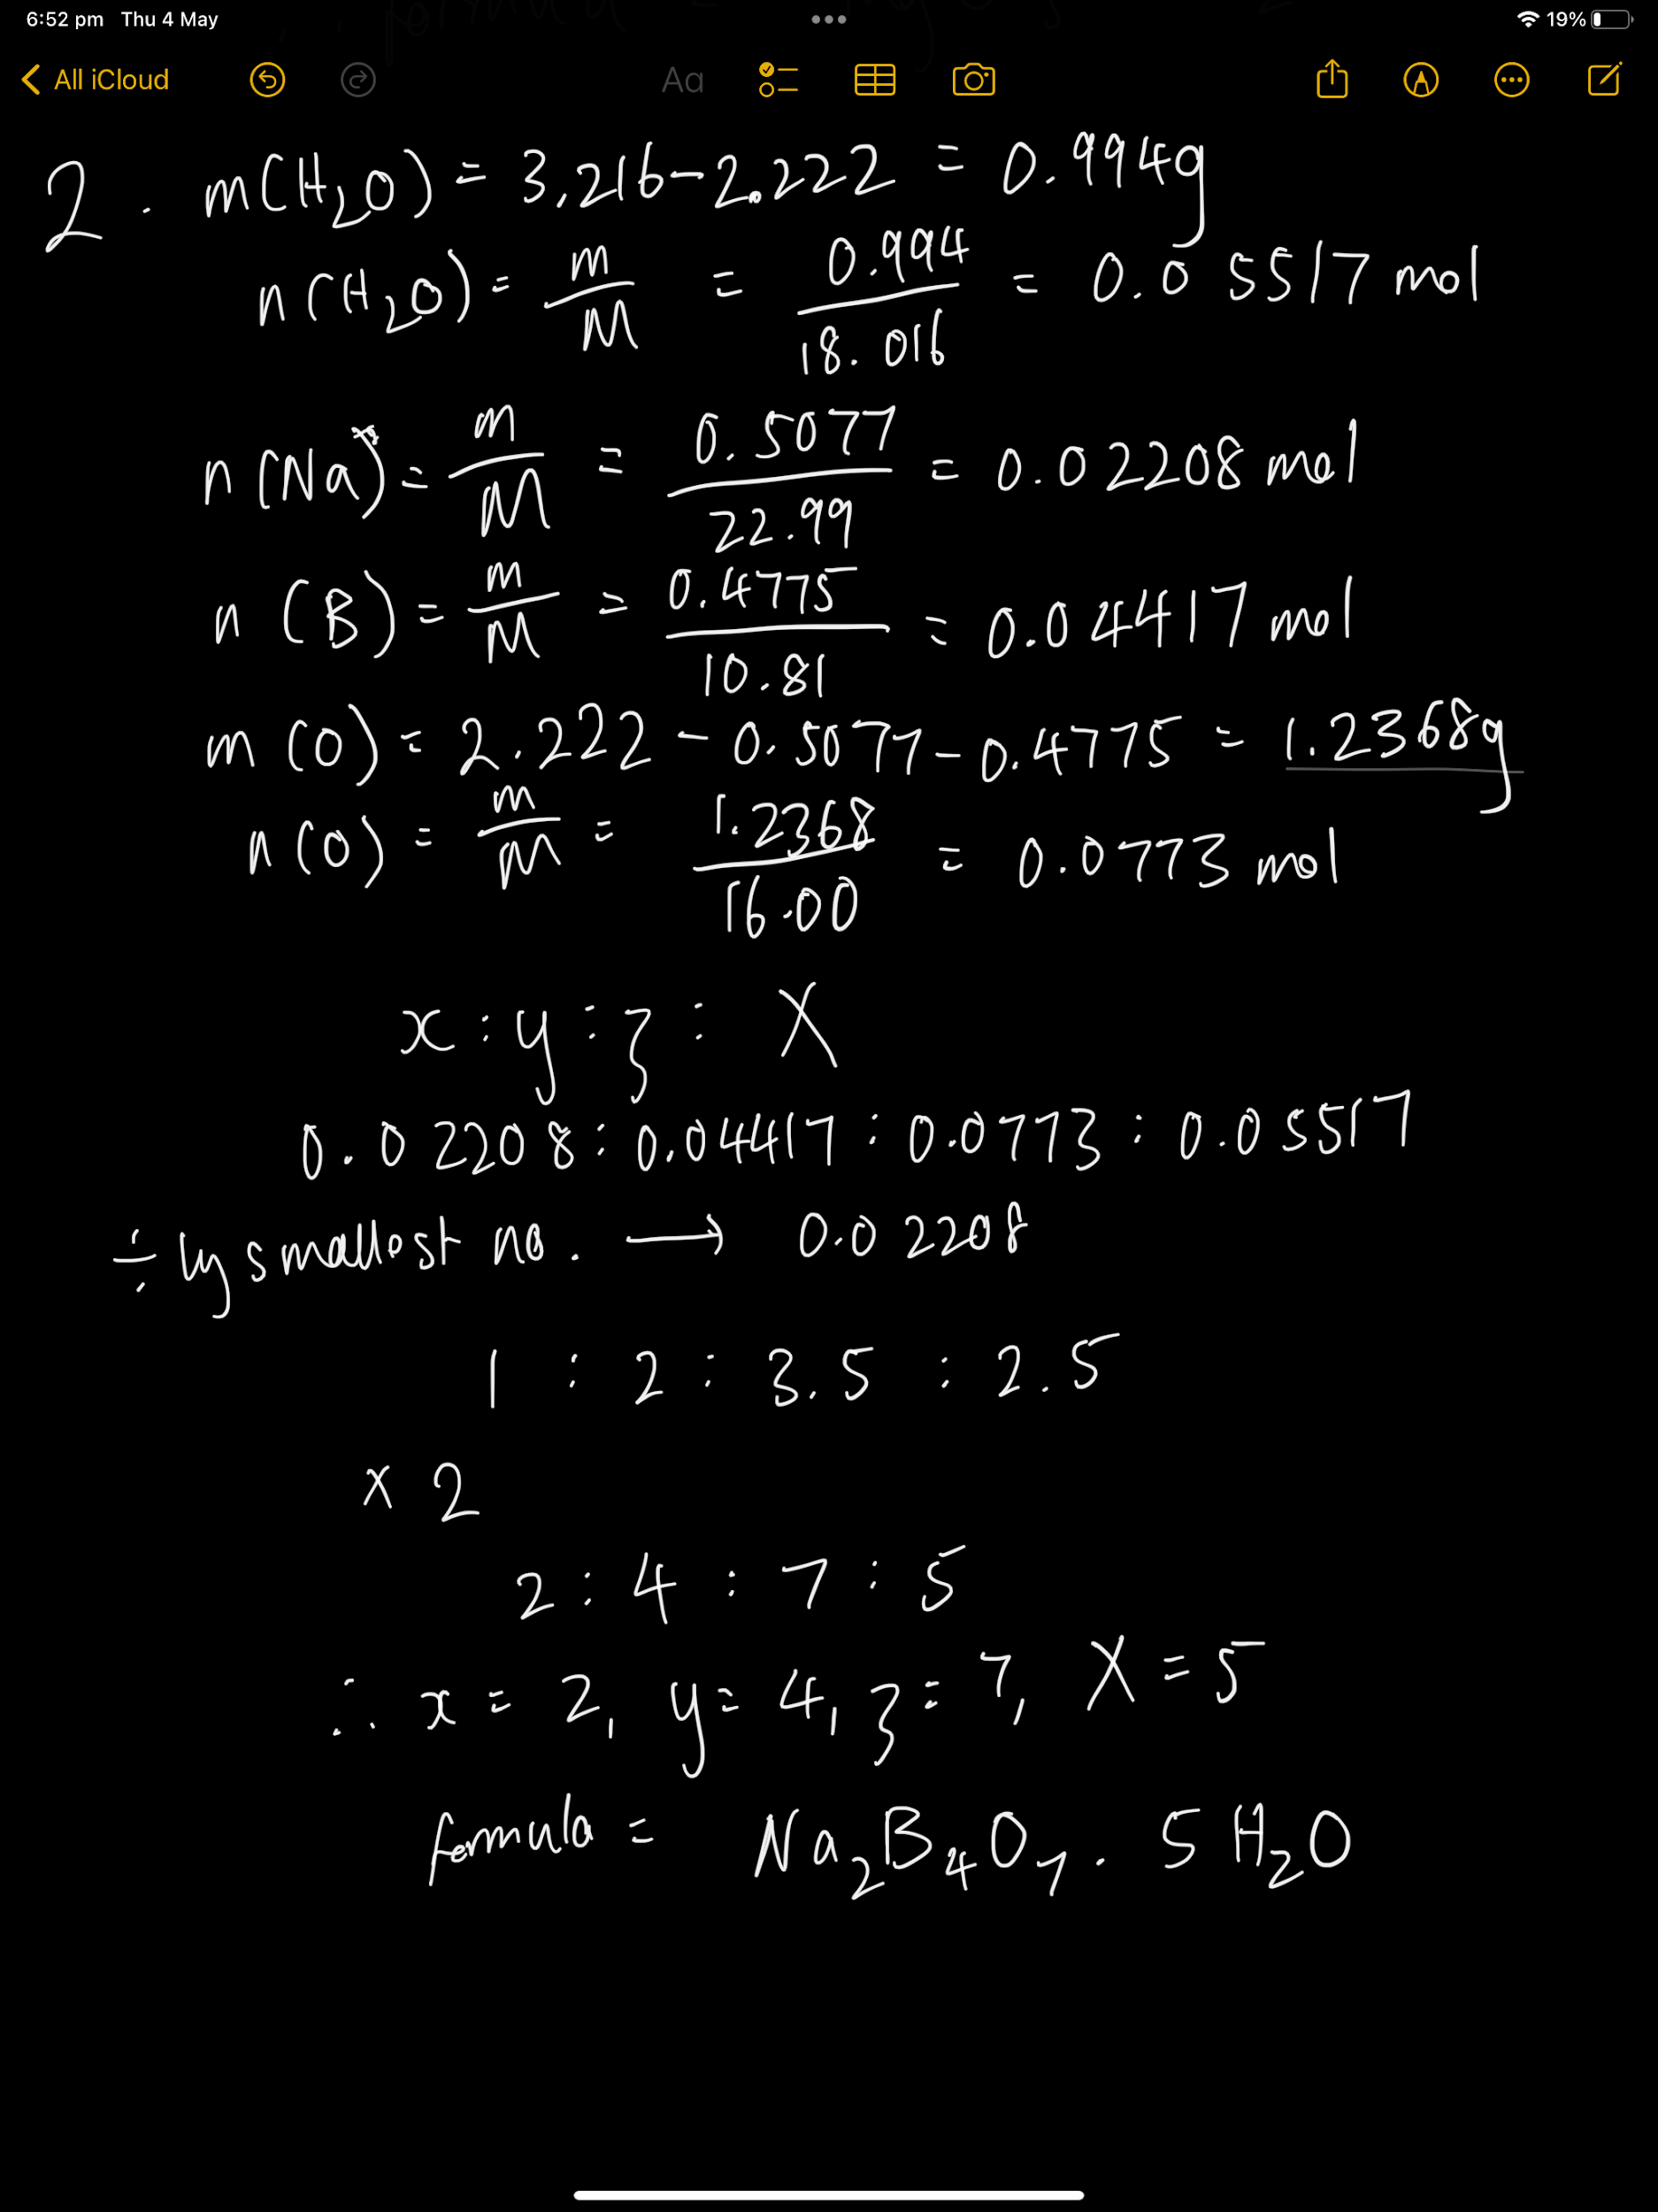 6:52 pm Thu 4 May 19%
All iCloud Aa
2. m(H₂O) = 3.216-2.222 = 0.994g
n(H₂O) = m/M = 0.994/18.016 = 0.05517 mol
n(Na⁺) = m/M = 0.5077/22.99 = 0.02208 mol
n(B) = m/M = 0.4775/10.81 = 0.04417 mol
m(O) = 2.222 - 0.5077 - 0.4775 = 1.2368g
n(O) = m/M = 1.2368/16.00 = 0.0773 mol
x : y : z : X
0.02208 : 0.04417 : 0.0773 : 0.05517
÷ by smallest no. → 0.02208
1 : 2 : 3.5 : 2.5
x 2
2 : 4 : 7 : 5
∴ x = 2, y = 4, z = 7, X = 5
formula = Na₂B₄O₇ . 5H₂O